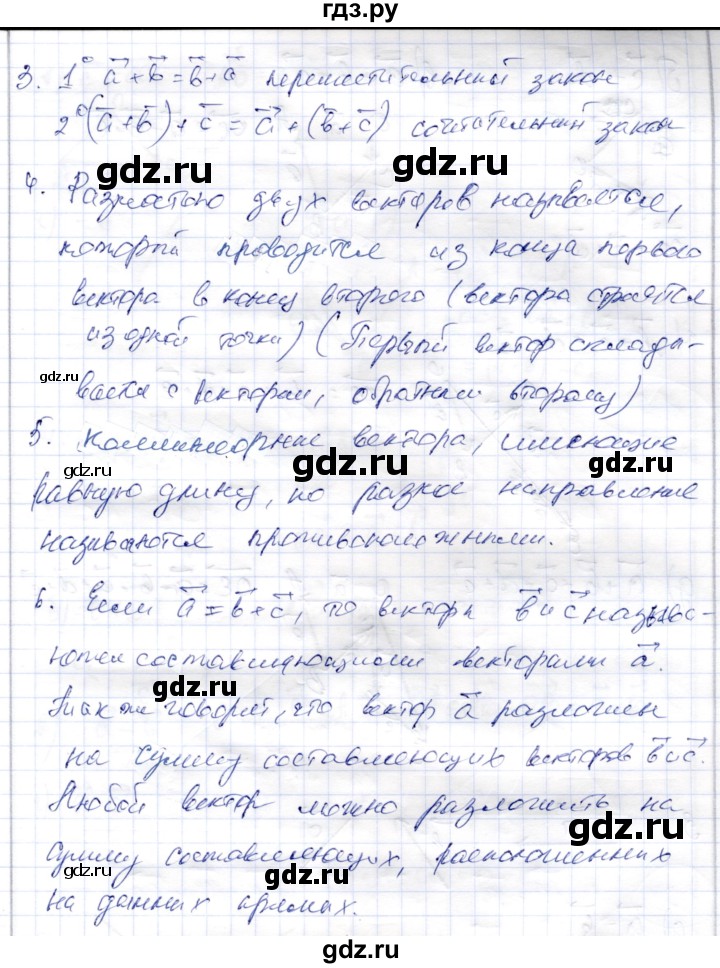 гдз.ру
3. 1° a⃗ + b⃗ = b⃗ + a⃗ переместительный закон
2° (a⃗ + b⃗) + c⃗ = a⃗ + (b⃗ + c⃗) сочетательный закон
gdz.ru gdz.ru
4. Разностью двух векторов называется,
который проводится из конца первого
gdz.ru
вектора в конец второго (вектора строятся
из одной точки) (Первый вектор склады-
gdz.ru gdz.ru
вается с вектором, обратным второму)
5. Коллинеарные вектора, имеющие
gdz.ru gdz.ru
равную длину, но разное направление
называются противоположными.
6. Если a⃗ = b⃗ + c⃗, то вектора b⃗ и c⃗ называ-
ются составляющими векторами a⃗.
gdz.ru
Также говорят, что вектор a⃗ разложен
gdz.ru
на сумму составляющих векторов b⃗ и c⃗.
Любой вектор можно разложить на
gdz.ru
сумму составляющих, расположенных
на данных прямых.
gdz.ru
gdz.ru